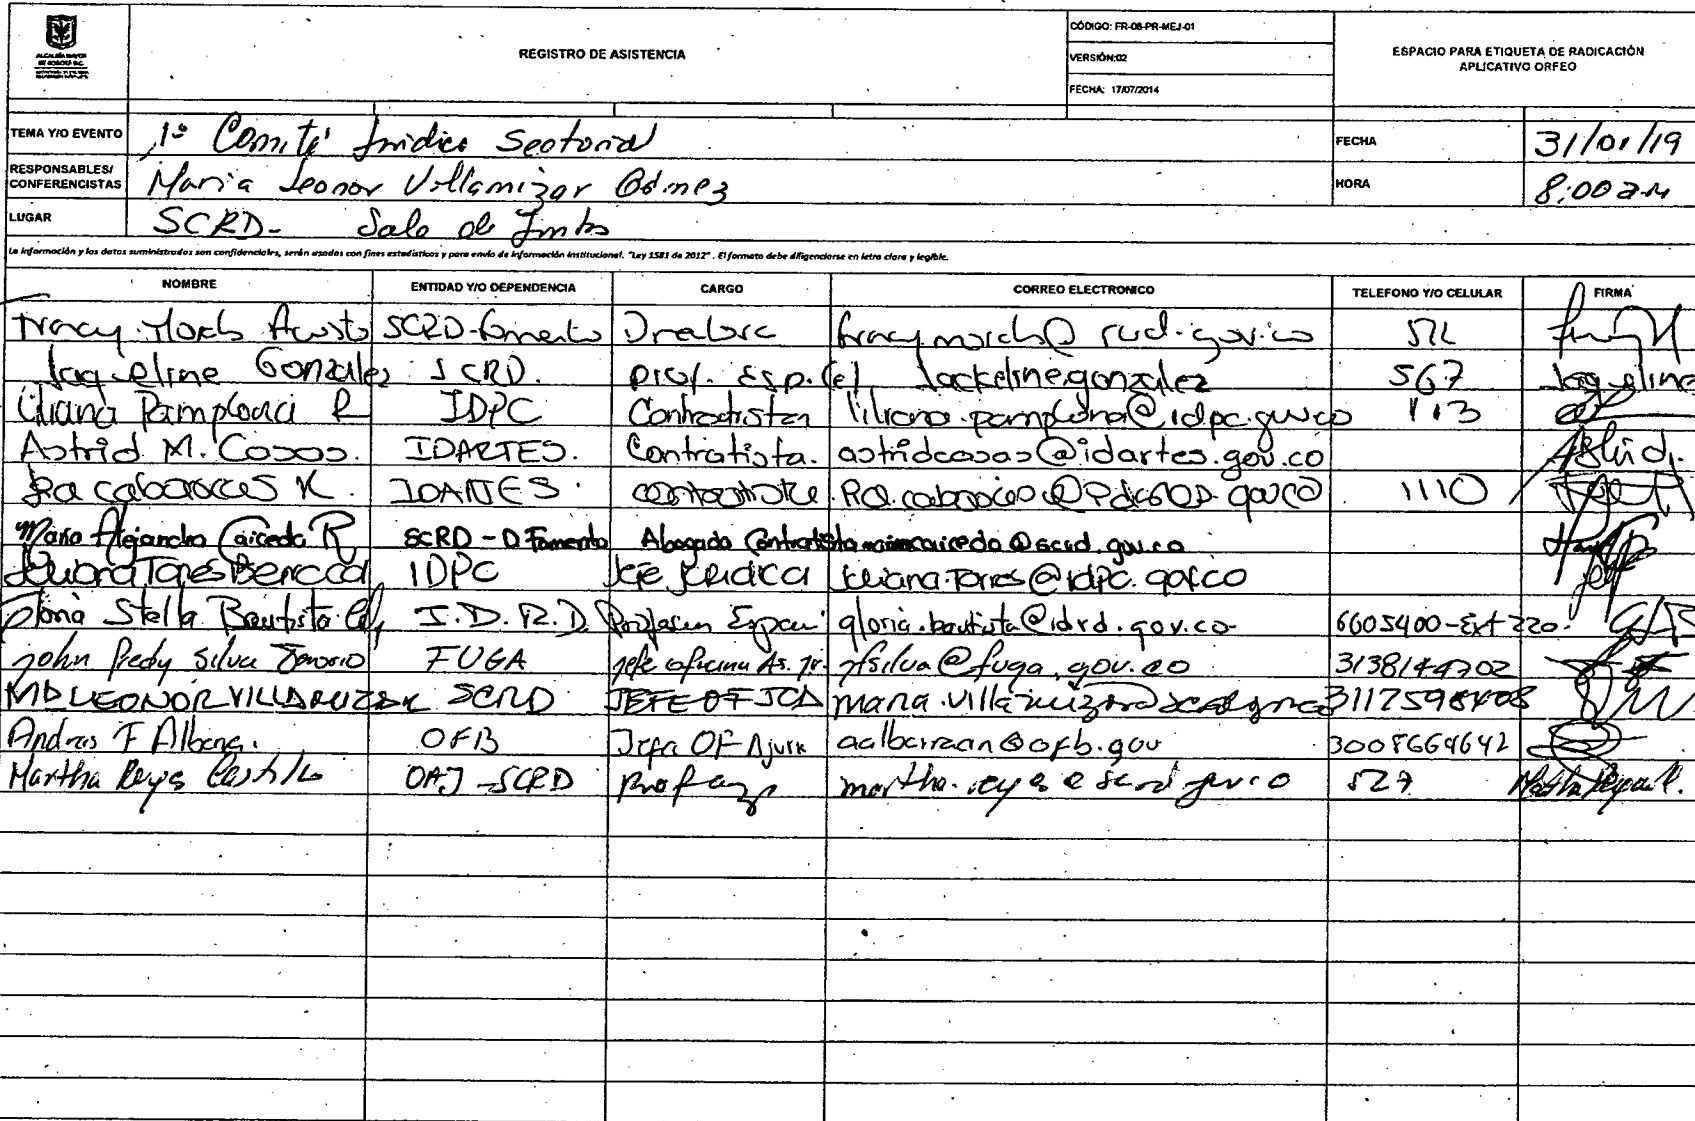 ALCALDÍA MAYOR
DE BOGOTÁ D.C.
REGISTRO DE ASISTENCIA
CÓDIGO: FR-08-PR-MEJ-01
VERSIÓN:02
FECHA: 17/07/2014
ESPACIO PARA ETIQUETA DE RADICACIÓN
APLICATIVO ORFEO
TEMA Y/O EVENTO 1º Comité Jurídico Sectorial FECHA 31/01/19
RESPONSABLES/ CONFERENCISTAS Maria Leonor Villamizar Gómez HORA 8:00 am
LUGAR SCRD- Sala de Juntas
La información y los datos suministrados son confidenciales, serán usados con fines estadísticos y para envío de información institucional. "Ley 1581 de 2012" . El formato debe diligenciarse en letra clara y legible.
NOMBRE ENTIDAD Y/O DEPENDENCIA CARGO CORREO ELECTRONICO TELEFONO Y/O CELULAR FIRMA
SCRD-Fomento
Jaqueline Gonzalez SCRD. prof. Esp. (e) Jackeline.gonzalez 567 Jaqueline
Liliana Pamplona R IDPC Contratista liliana.pamplona@idpc.gov.co 113
Astrid M. Casas. IDARTES. Contratista. astridcasas@idartes.gov.co Astrid.
IDARTES. contratista 1110
Maria Alejandra Caicedo R SCRD - D Fomento Abogada Contratista @scrd.gov.co
Juliana Torres IDPC Jefe Jurídica Juliana.Torres@idpc.gov.co
Gloria Stella Bautista I.D.R.D. gloria.bautista@idrd.gov.co 6605400-Ext 220
john fredy Silva Tenorio FUGA jefe oficina As. Jr. jfsilva@fuga.gov.co 3138144702
Mª LEONOR VILLAMIZAR SCRD JEFE OF JCA
Andres F Albarra. OFB aalbarracin@ofb.gov 3008664642
Martha Reyes Castillo OAJ -SCRD 527